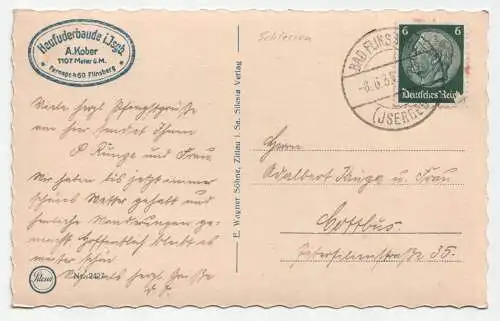 Heufuderbaude i. Jsgb.
A. Kober
1107 Meter ü. M.
Fernspr. 60 Flinsberg
Schlesien
BAD FLINS
-8.6.3
(JSERGEB
6 6
Deutsches Reich
Viele herzl. Pfingstgrüße
von hier sendet Ihnen
P. Runge und Frau
Wir haben bis jetzt immer
schönes Wetter gehabt und
herrliche Wanderungen ge-
macht. Hoffentlich bleibt es
weiter schön
Nochmals herzl. Grüße
Silesia
Nr. 2427
E. Wagner Söhne, Zittau i. Sa. Silesia Verlag
Herrn
Adalbert Runge u. Frau
Cottbus.
35.